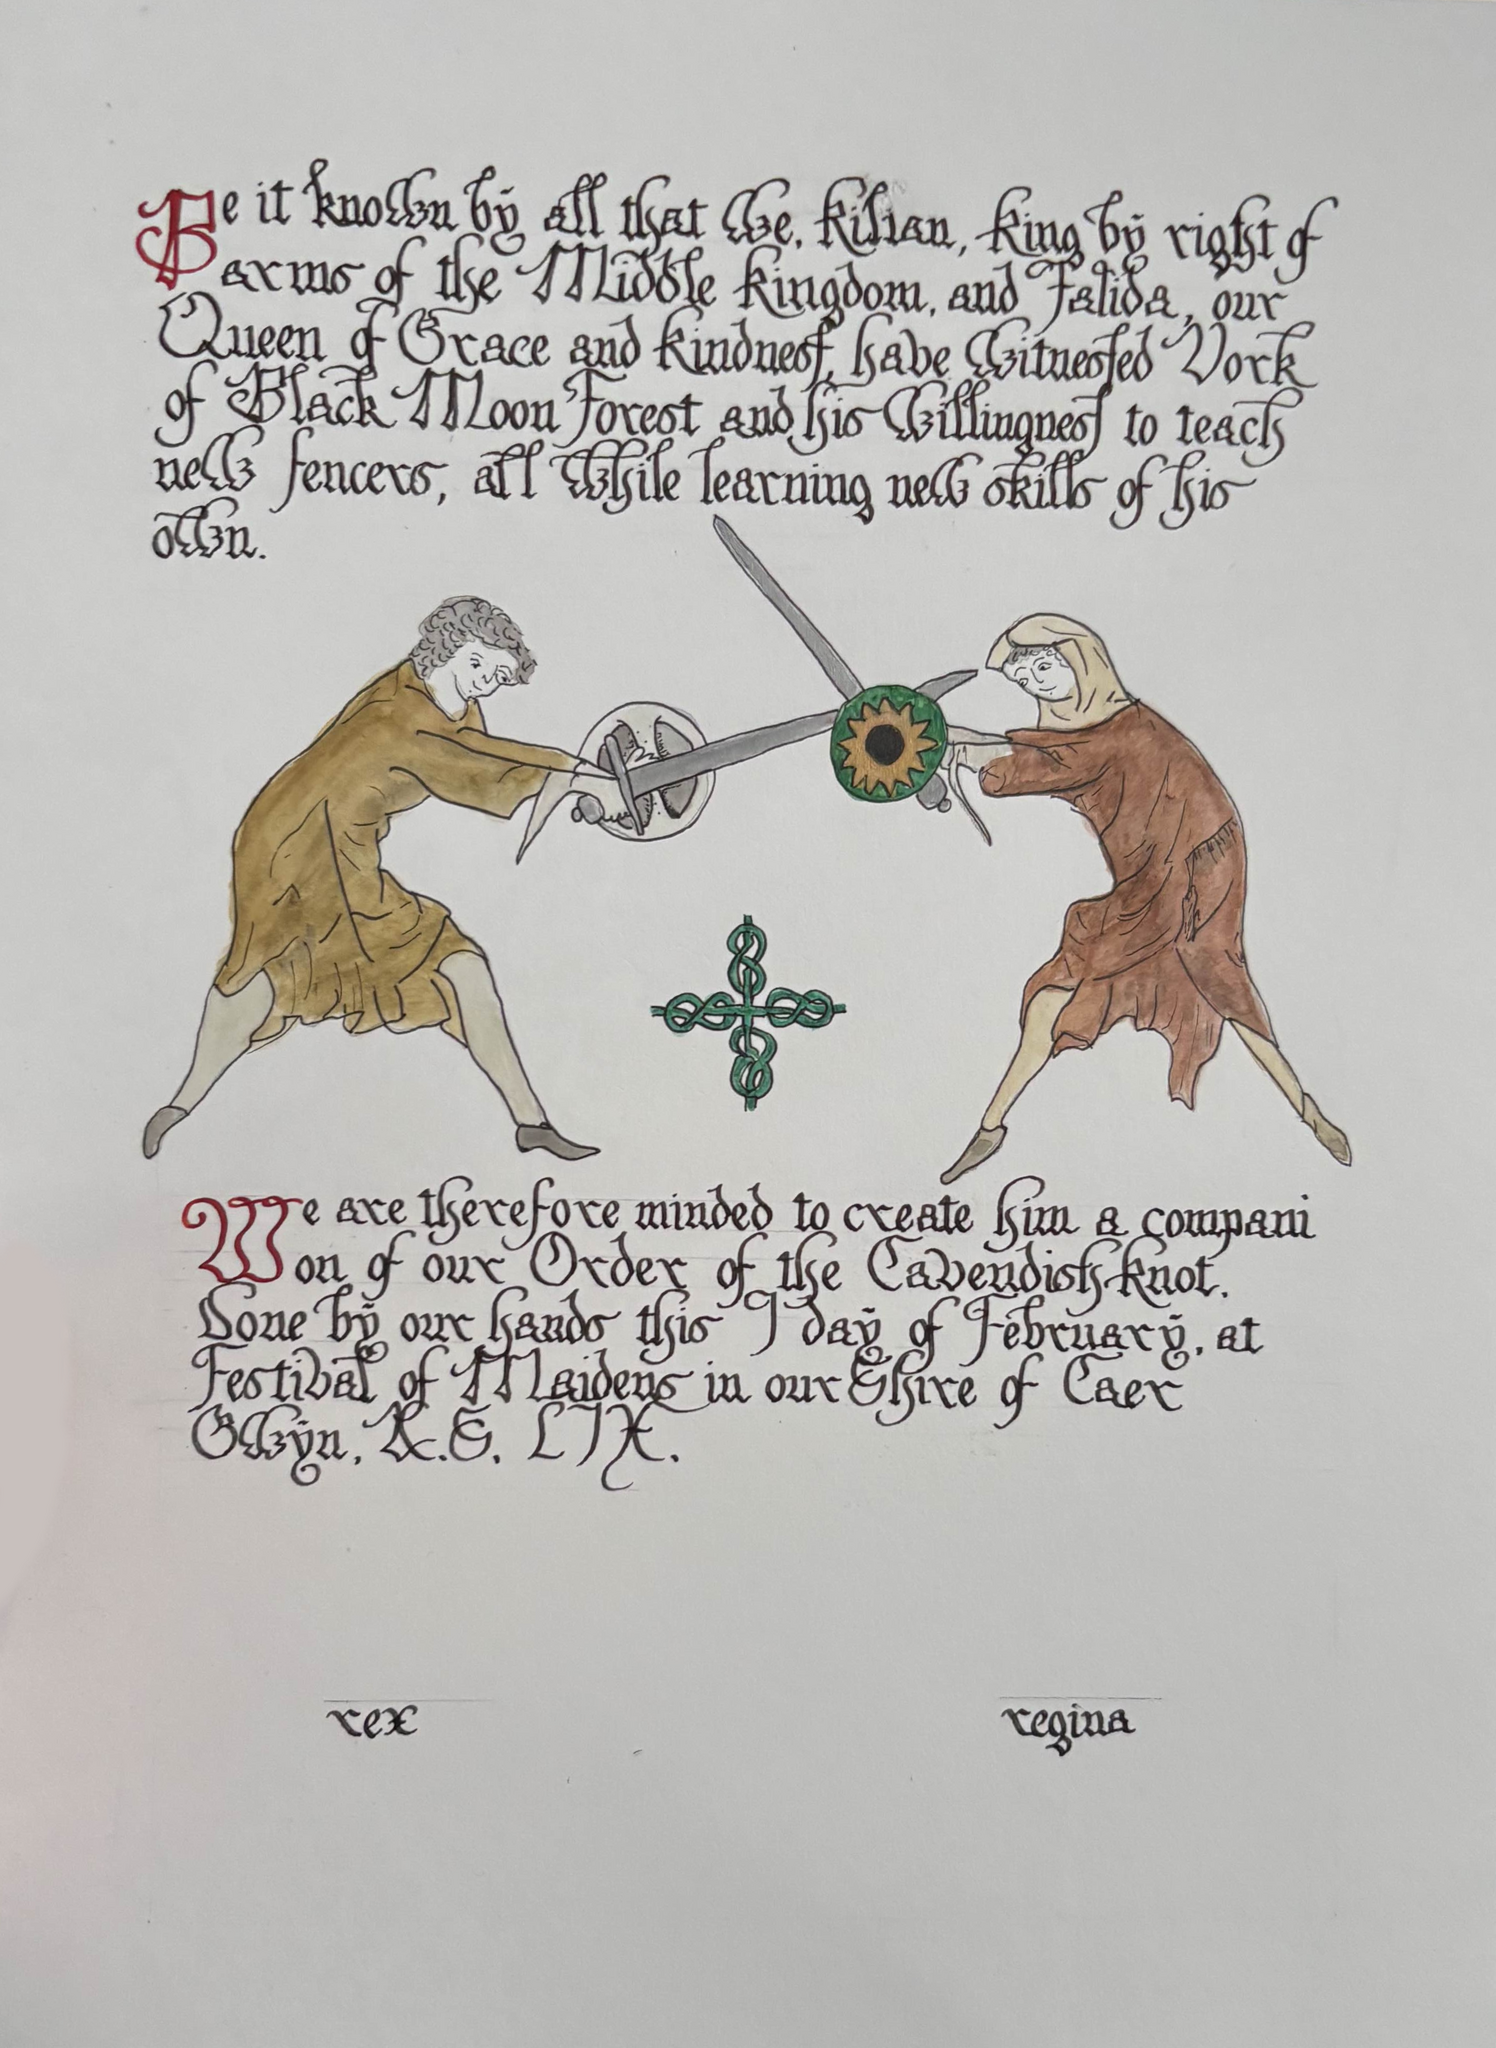 Be it known by all that We, Kilian, King by right of
arms of the Middle Kingdom, and Falida, our
Queen of Grace and Kindness, have witnessed Vork
of Black Moon Forest and his willingness to teach
new fencers, all while learning new skills of his
own.
We are therefore minded to create him a compani
on of our Order of the Cavendish Knot.
Done by our hands this 9 day of February, at
Festival of Maidens in our Shire of Caer
Gwyn, A.S. LIX.
rex
regina